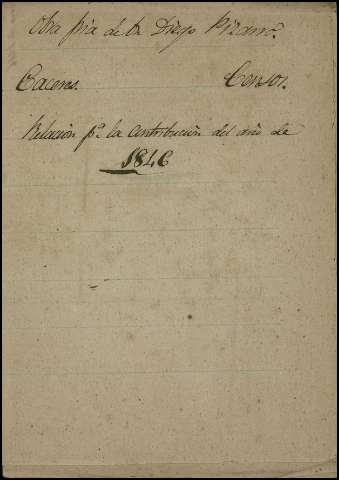 Obra pia de Dn Diego Pizarro.
Caceres. Censos.
Relacion pa. la contribucion del año de
1846